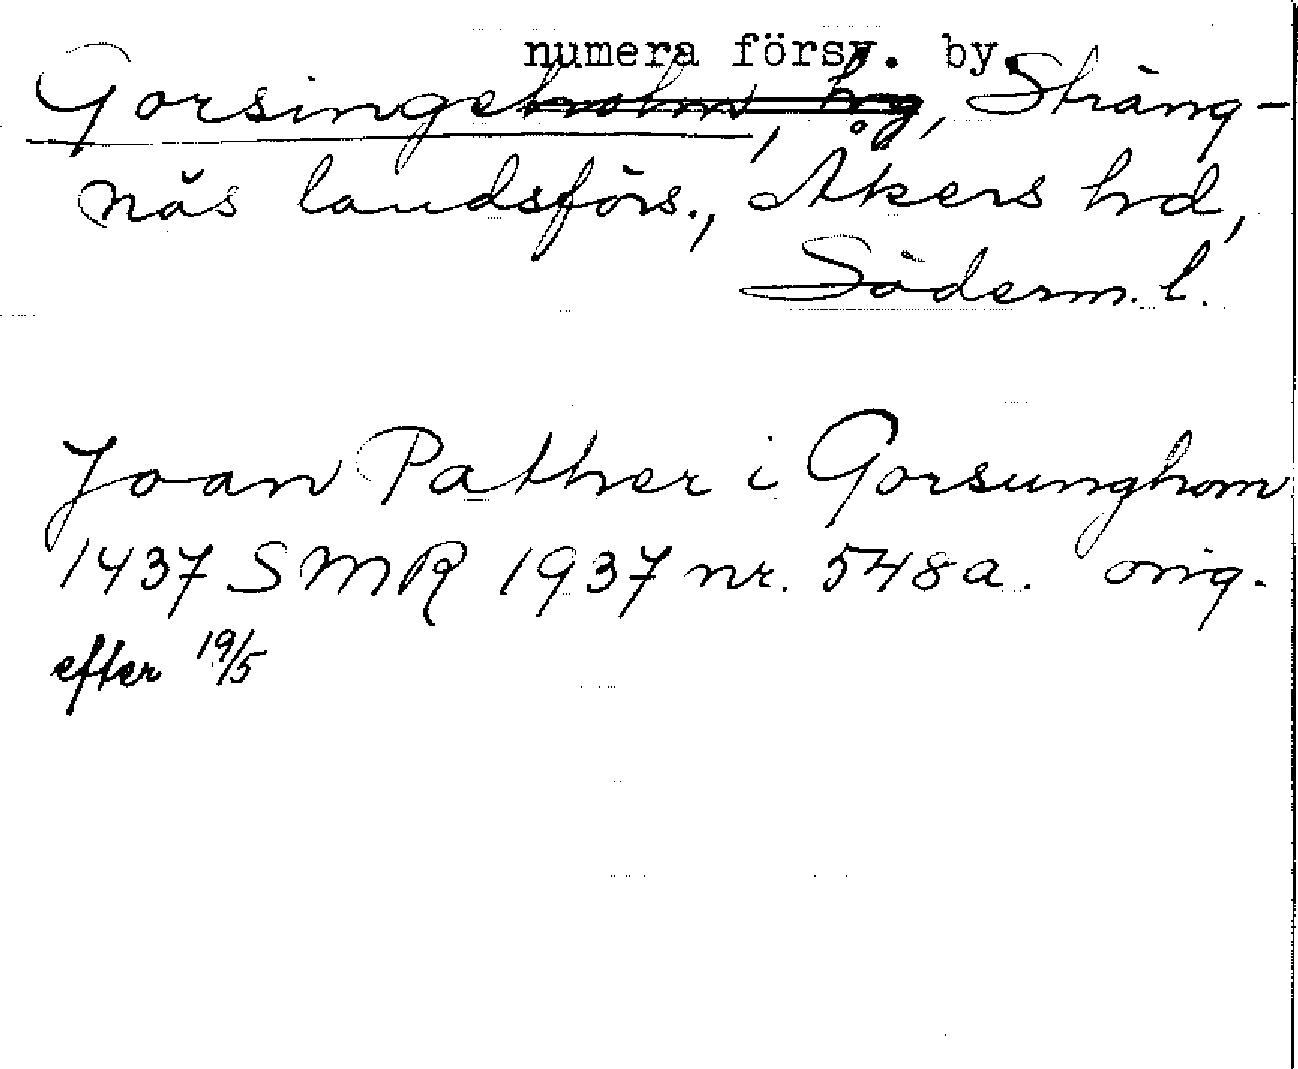 numera försv. by.
Gorsingeholm, hg, Sträng-
näs landsförs., Åkers hd,
Söderm. l.
Joan Pather i Gorsunghom
1437 SMR 1937 nr. 548a. orig.
efter 19/5